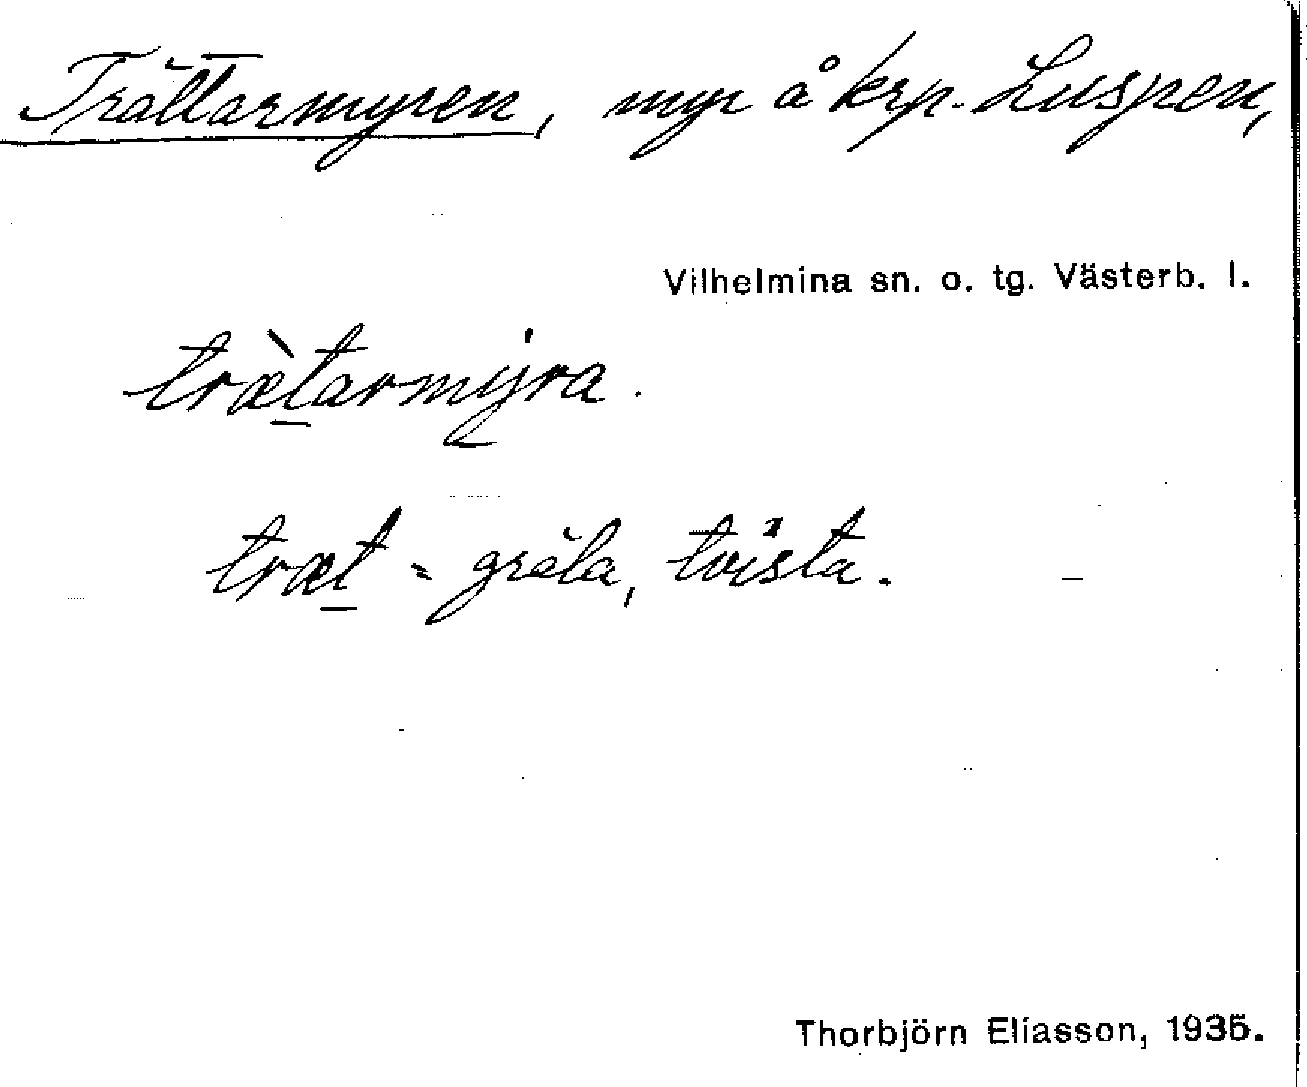 Trättarmyren, myr å krp. Luspen,
Vilhelmina sn. o. tg. Västerb. l.
træ̀t̲armyra.
træt̲ = gräla, tvista.
Thorbjörn Eliasson, 1935.